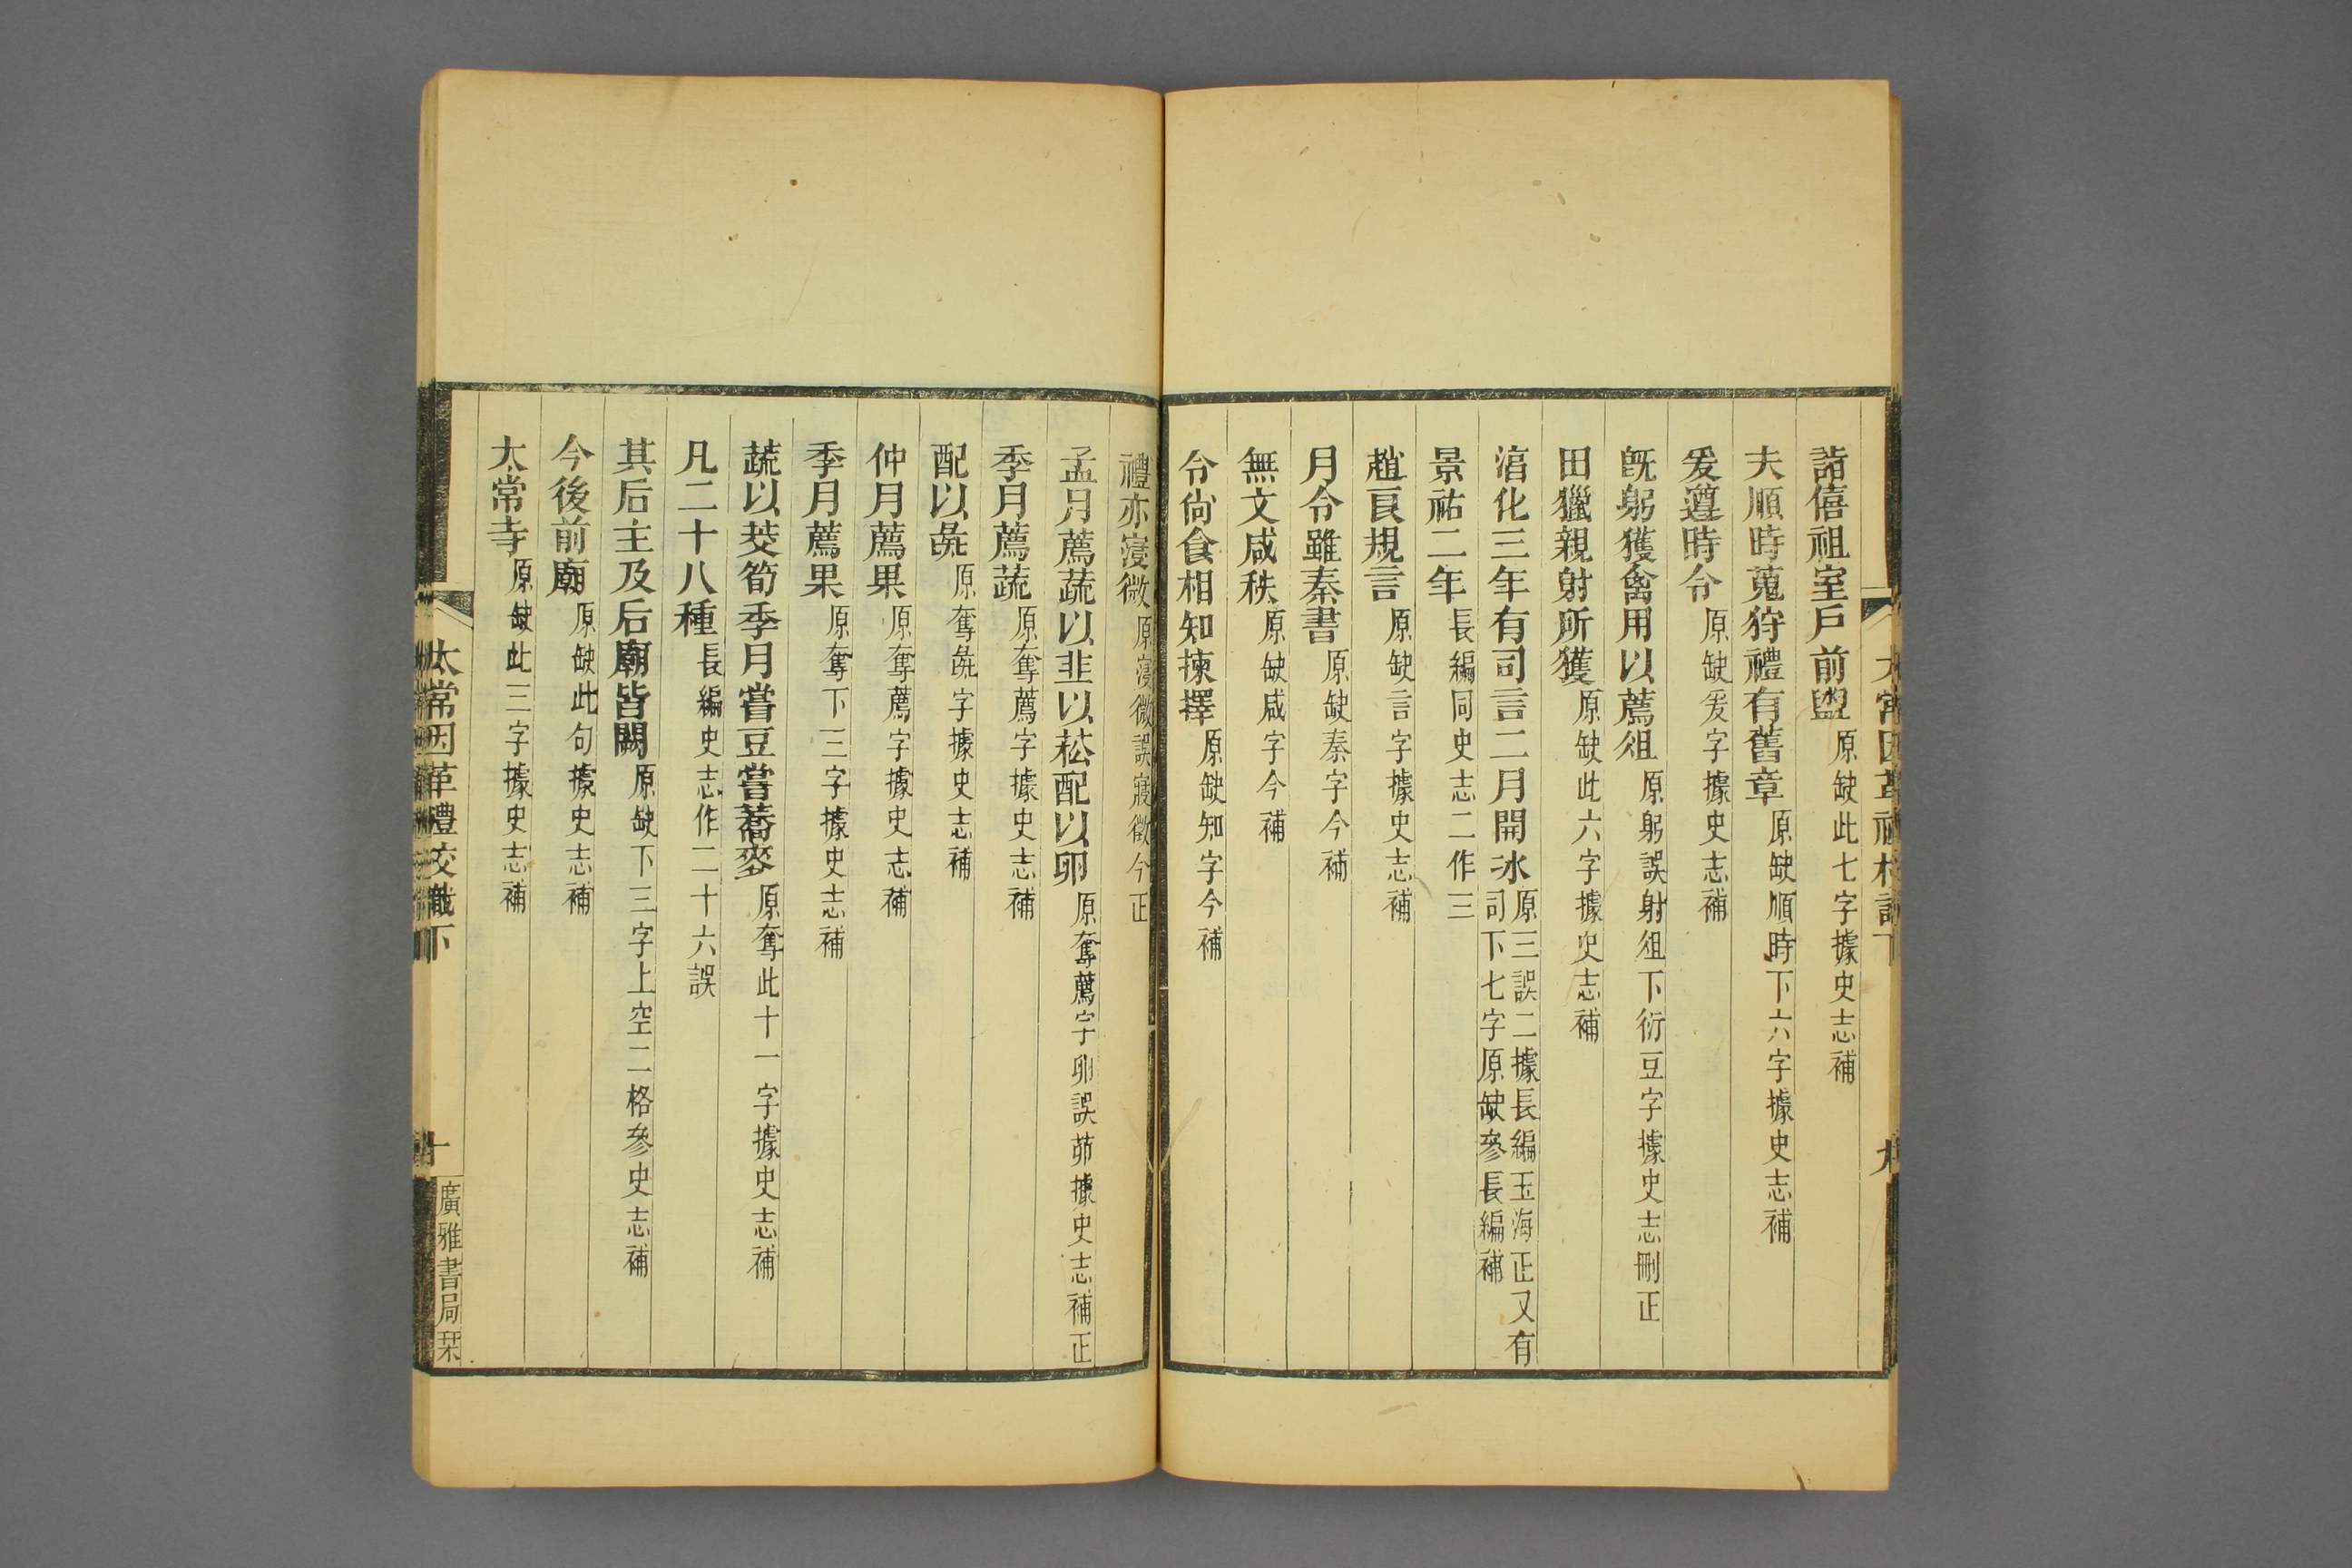 詣僖祖室戶前盥原缺此七字據史志補
夫順時蒐狩禮有舊章原缺順時下六字據史志補
爰遵時令原缺爰字據史志補
旣躬獲禽用以薦俎原躬誤射俎下衍豆字據史志刪正
田獵親射所獲原缺此六字據史志補
淯化三年有司言二月開冰原三誤二據長編玉海正又有司下七字原缺參長編補
景祐二年長編同史志二作三
趙良規言原缺言字據史志補
月令雖秦書原缺秦字今補
無文咸秩原缺咸字今補
令尙食相知揀擇原缺知字今補
禮亦寖微原寖微誤寢徵今正
孟月薦蔬以韭以菘配以卵原奪薦字卵誤茆據史志補正
季月薦蔬原奪薦字據史志補
配以彘原奪彘字據史志補
仲月薦果原奪薦字據史志補
季月薦果原奪下三字據史志補
蔬以茭筍季月嘗豆嘗蕎麥原奪此十一字據史志補
凡二十八種長編史志作二十六誤
其后主及后廟皆闕原缺下三字上空二格參史志補
今後前廟原缺此句據史志補
太常寺原缺此三字據史志補
太常因革禮校識下
十
廣雅書局栞